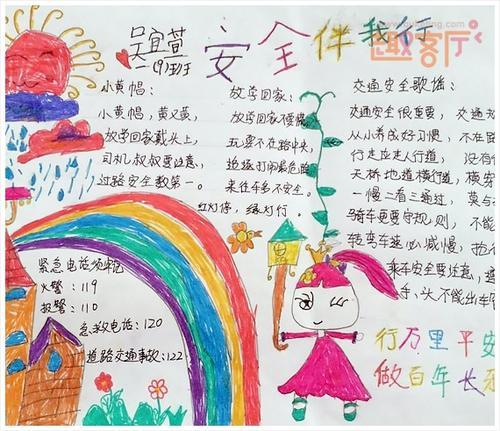 吴宜萱
一(9)班
安全伴我行
趣客厅
小黄帽:
小黄帽,黄又黄,
放学回家戴头上,
司机叔叔要注意,
过路安全数第一。
放学回家:
放学回家不要慌
五要不在路中央,
追逐打闹最危险
来往车多不安全。
红灯停,绿灯行。
交通安全歌谣:
交通安全很重要,交通
从小养成好习惯,不在路
行走应走人行道,没有
天桥地道横行道,横穿
一慢二看三通过,莫与
骑车更要守规则,不能
转弯车速必减慢,抢
乘车安全要注意,遵
手、头不能出车
紧急电话须牢记
火警:119
报警:110
急救电话:120
道路交通事故:122
行万里平安
做百年长乐